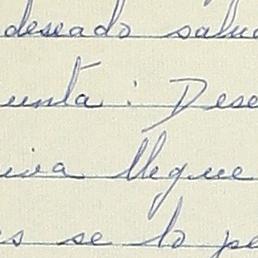 deseado salu
unta: Dese
iva llegue
es se lo pe